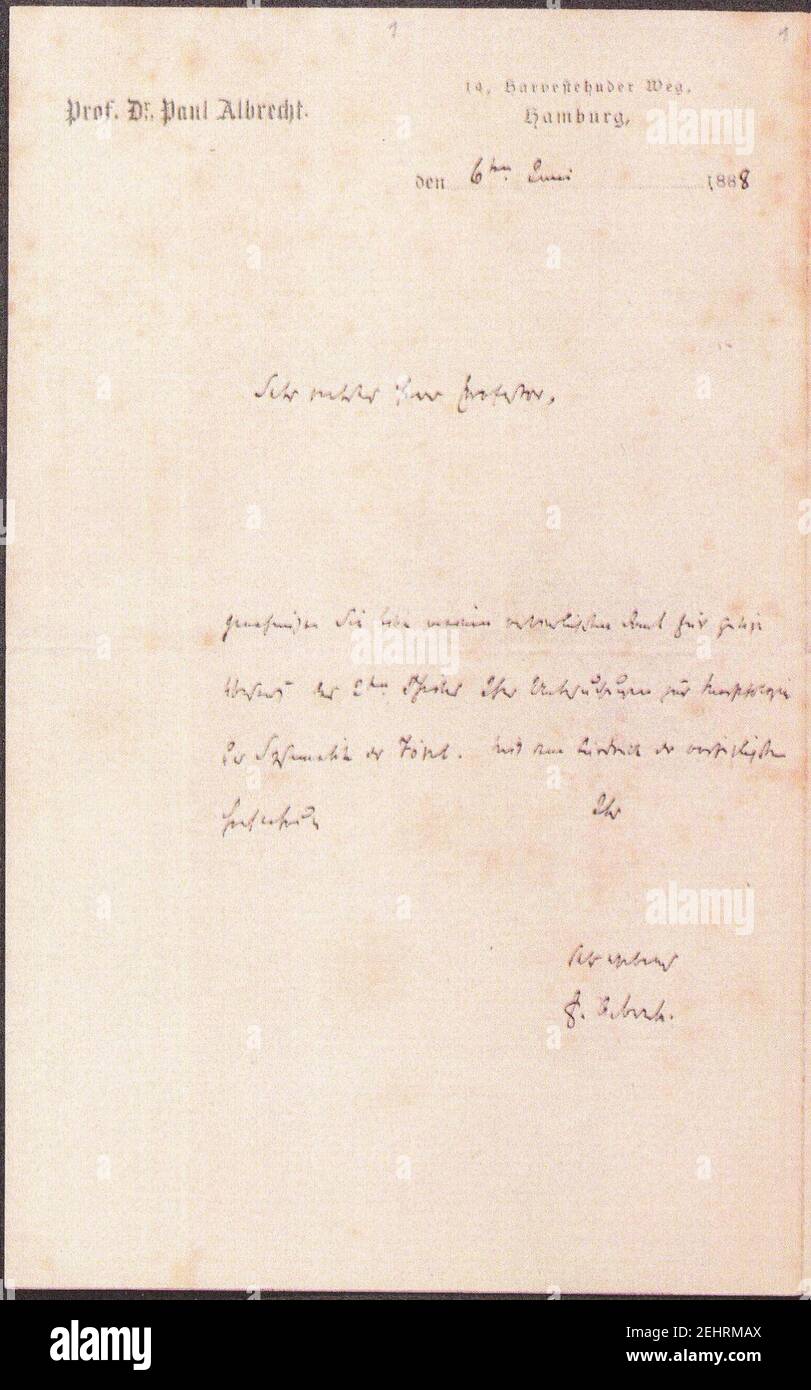 1 1
Prof. Dr. Paul Albrecht.
19, Harvestehuder Weg,
Hamburg,
den 6ten Juni 1888
Sehr geehrter Herr Professor,
genehmigen Sie bitte meinen verbindlichsten Dank für gütige
des 2ten Theiles Ihrer Untersuchungen zur Morphologie
der Systematik der Vögel. Mit dem Ausdruck der vorzüglichsten
Hochachtung Ihr
Sehr ergebener
P. Albrecht.
alamy
Image ID: 2EHRMAX
www.alamy.com